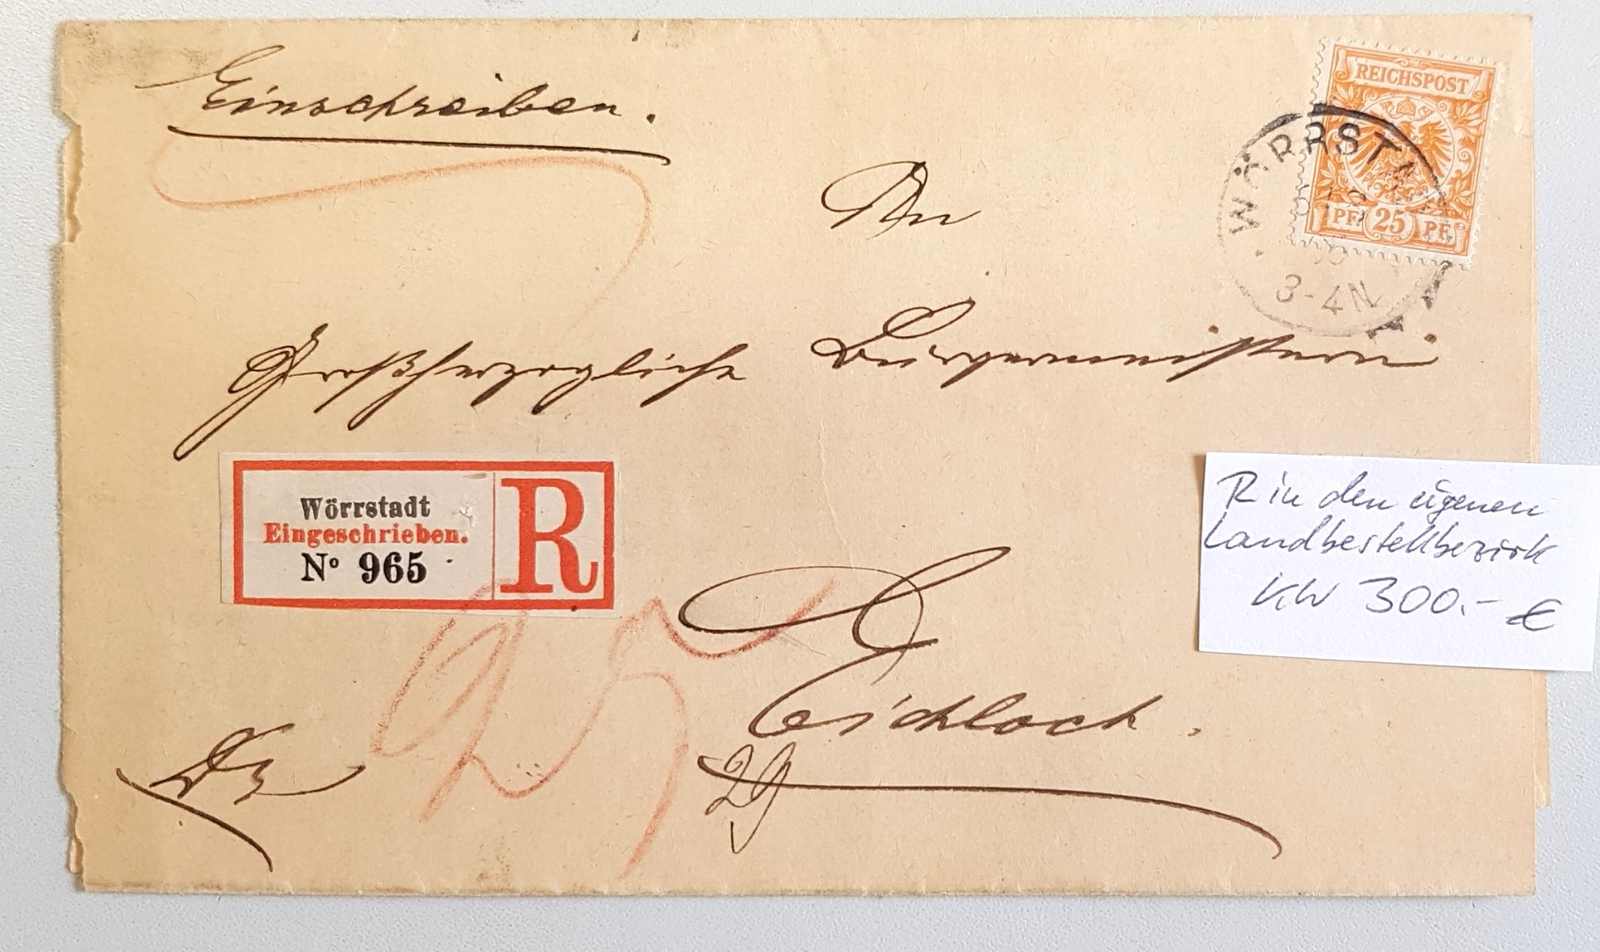 Einschreiben.
REICHSPOST
PF. 25 PF.
WÖRRST
3-4N
An
Großherzogliche Bürgermeisterei
Wörrstadt
Eingeschrieben.
Nº 965
R
25
Eichloch.
29
R in den eigenen
Landbestellbezirk
KW 300.- €